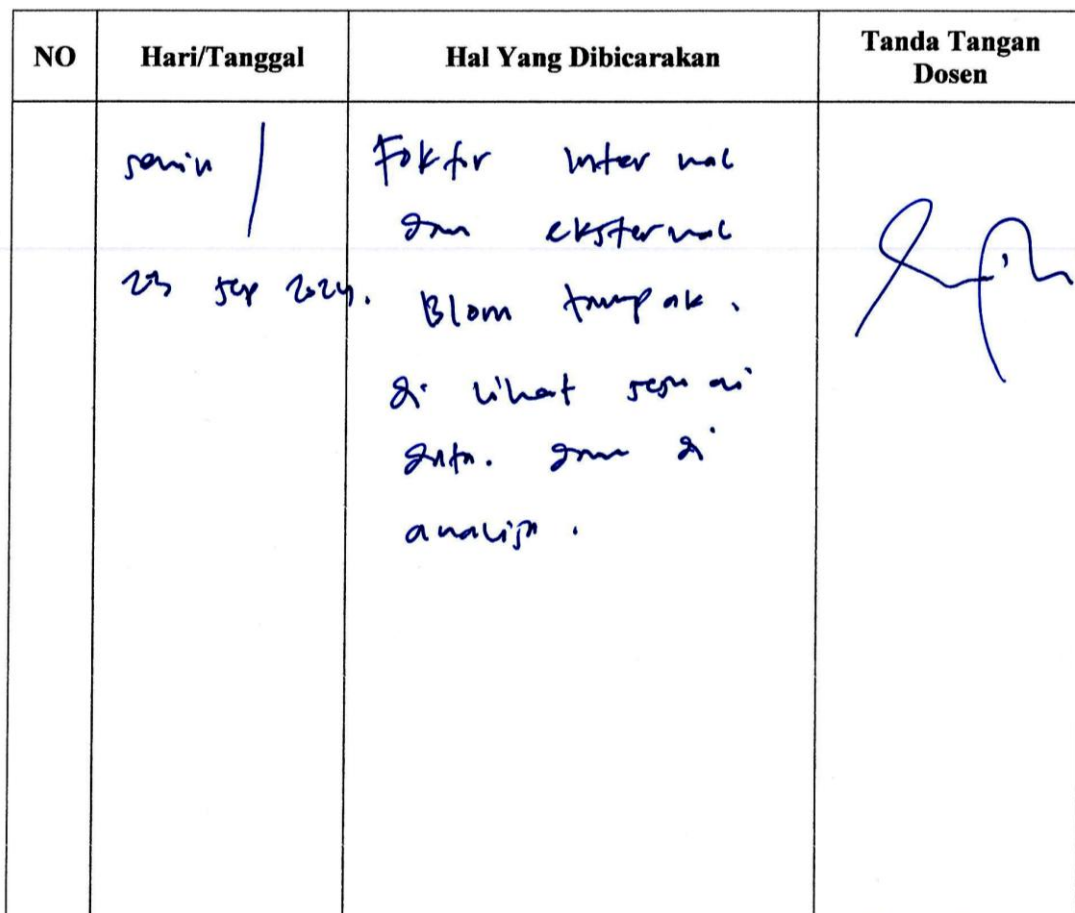 NO Hari/Tanggal Hal Yang Dibicarakan Tanda Tangan
Dosen
senin / Faktor internal
dan eksternal
23 sep 2024. Blom tampak.
di lihat sesuai
data. dan di
analisa.